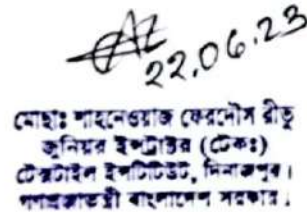 22.06.23
মোছাঃ শাহনেওয়াজ ফেরদৌস রীতু
জুনিয়র ইন্সট্রাক্টর (টেকঃ)
টেক্সটাইল ইনস্টিটিউট, দিনাজপুর।
গণপ্রজাতন্ত্রী বাংলাদেশ সরকার।